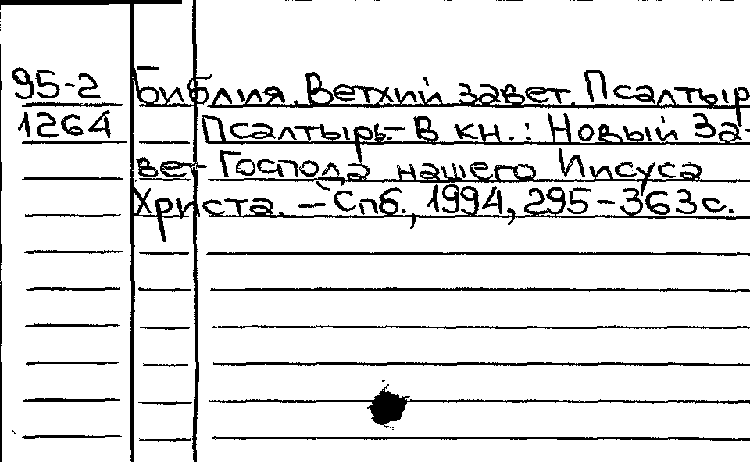 95-2 Библия. Ветхий завет. Псалтыр
1264 Псалтырь.- В кн.: Новый За-
вет Господа нашего Иисуса
Христа. - Спб., 1994, 295-363с.